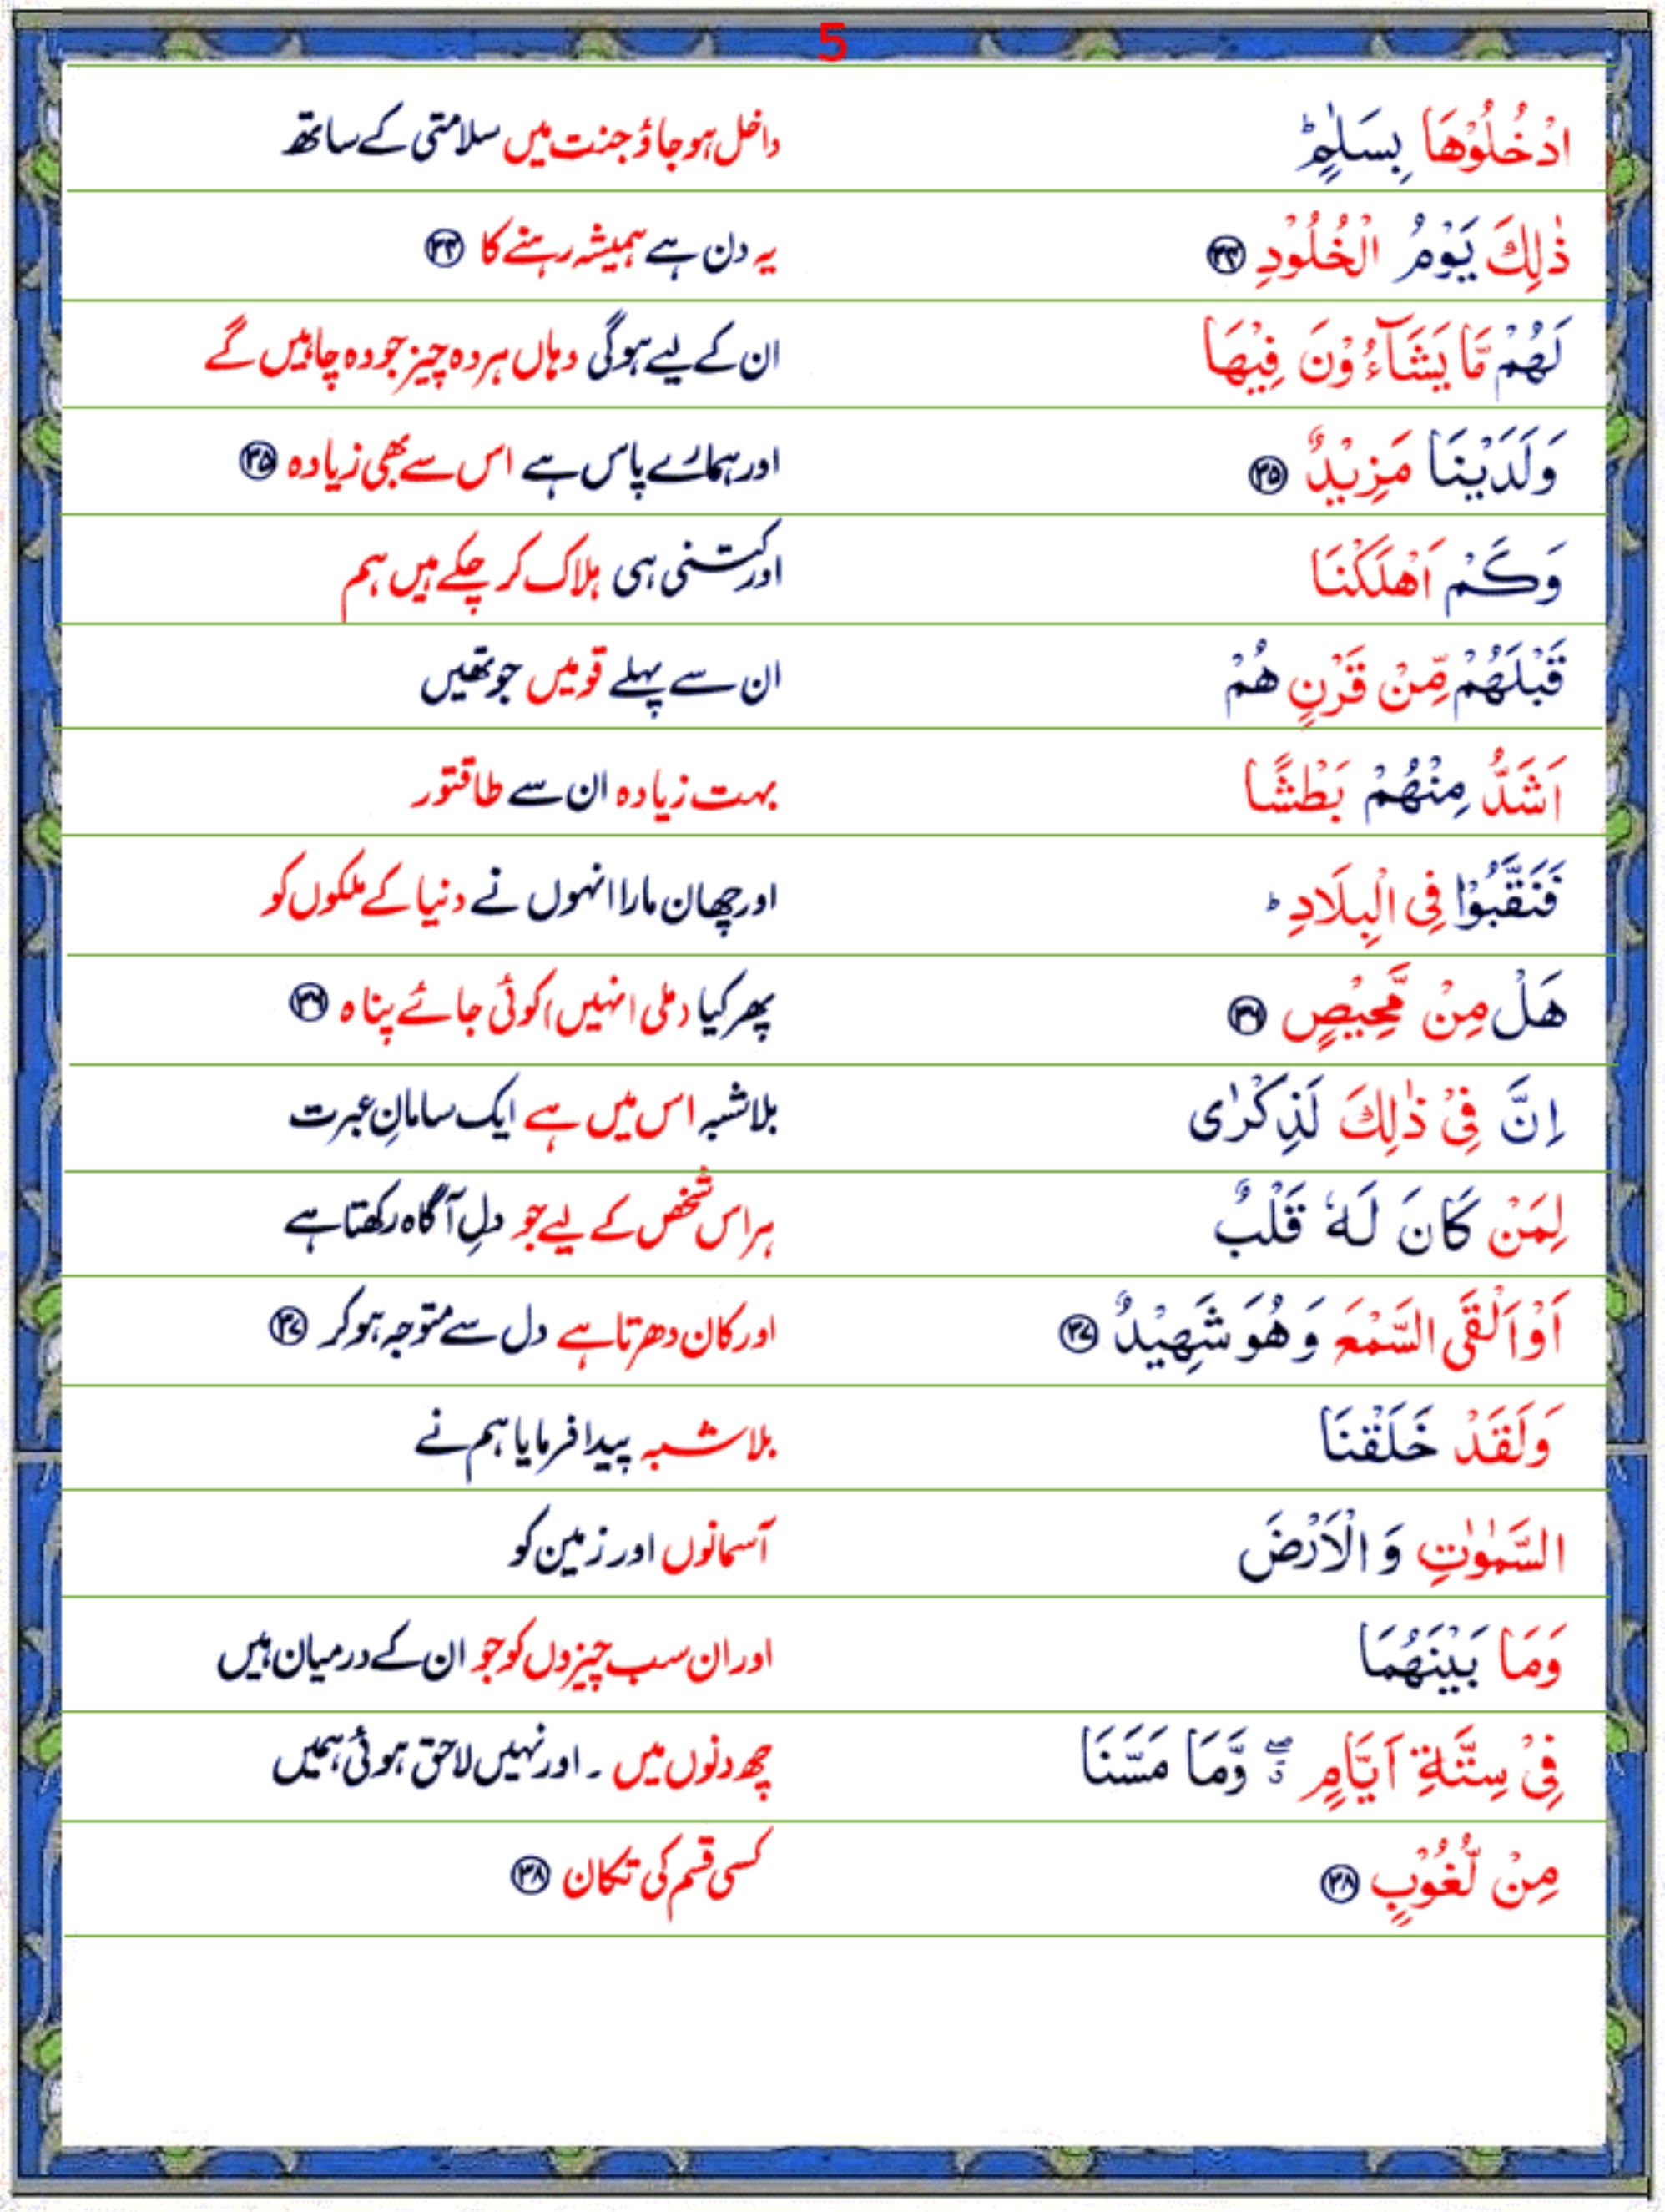 5
ادْخُلُوْهَا بِسَلٰمٍ ؕ داخل ہو جاؤ جنت میں سلامتی کے ساتھ
ذٰلِكَ يَوْمُ الْخُلُوْدِ ۳۴ یہ دن ہے ہمیشہ رہنے کا ۳۴
لَهُمْ مَّا يَشَآءُوْنَ فِيْهَا ان کے لیے ہوگی وہاں ہر وہ چیز جو وہ چاہیں گے
وَلَدَيْنَا مَزِيْدٌ ۳۵ اور ہمارے پاس ہے اس سے بھی زیادہ ۳۵
وَكَمْ اَهْلَكْنَا اور کتنی ہی ہلاک کر چکے ہیں ہم
قَبْلَهُمْ مِّنْ قَرْنٍ هُمْ ان سے پہلے قومیں جو تھیں
اَشَدُّ مِنْهُمْ بَطْشًا بہت زیادہ ان سے طاقتور
فَنَقَّبُوْا فِى الْبِلَادِ ؕ اور چھان مارا انہوں نے دنیا کے ملکوں کو
هَلْ مِنْ مَّحِيْصٍ ۳۶ پھر کیا (ملی انہیں) کوئی جائے پناہ ۳۶
اِنَّ فِىْ ذٰلِكَ لَذِكْرٰى بلاشبہ اس میں ہے ایک سامانِ عبرت
لِمَنْ كَانَ لَهٗ قَلْبٌ ہر اس شخص کے لیے جو دلِ آگاہ رکھتا ہے
اَوْ اَلْقَى السَّمْعَ وَهُوَ شَهِيْدٌ ۳۷ اور کان دھرتا ہے دل سے متوجہ ہوکر ۳۷
وَلَقَدْ خَلَقْنَا بلاشبہ پیدا فرمایا ہم نے
السَّمٰوٰتِ وَ الْاَرْضَ آسمانوں اور زمین کو
وَمَا بَيْنَهُمَا اور ان سب چیزوں کو جو ان کے درمیان ہیں
فِىْ سِتَّةِ اَيَّامٍ ۖ وَّمَا مَسَّنَا چھ دنوں میں ۔ اور نہیں لاحق ہوئی ہمیں
مِنْ لُّغُوْبٍ ۳۸ کسی قسم کی تکان ۳۸